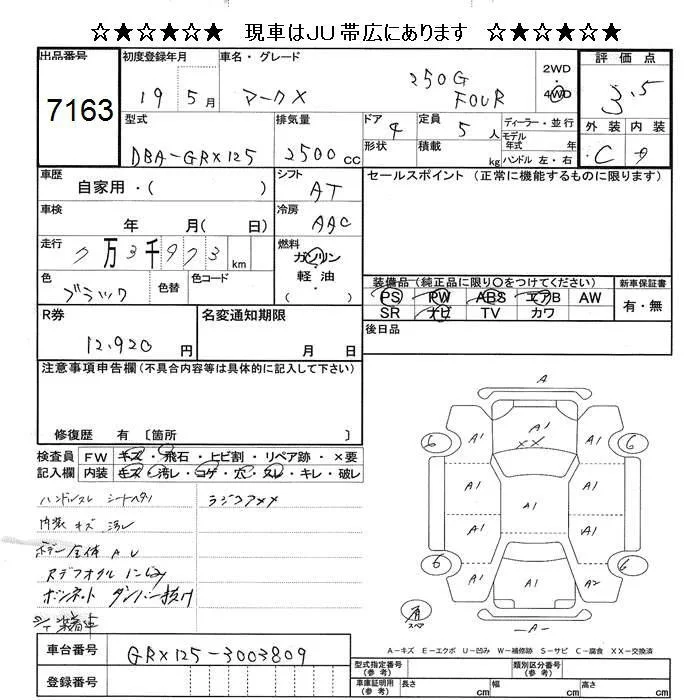 ☆★☆★☆★ 現車はJU帯広にあります ☆★☆★☆★
出品番号
7163
初度登録年月
19 5月
車名・グレード
マークX
250G
FOUR
2WD
4WD
評価点
3.5
外装 内装
C
型式
DBA-GRX125
排気量
2500cc
ドア 4
形状
定員 5人
積載 kg
ディーラー・並行
モデル
年式 年
ハンドル 左・右
車歴
自家用・( )
シフト
AT
セールスポイント (正常に機能するものに限ります)
車検
年 月( 日)
冷房
AAC
走行
7万3千973km
燃料
ガソリン
軽油
( )
色
ブラック
色替
色コード
装備品 (純正品に限り○をつけてください)
新車保証書
PS PW ABS エアB AW
有・無
SR ナビ TV カワ
後日品
R券
12,920円
名変通知期限
月 日
注意事項申告欄(不具合内容等は具体的に記入して下さい)
修復歴 有 〔箇所 〕
検査員
記入欄
FW キズ・飛石・上ヒ割・リペア跡・×要
内装 キズ・汚レ・コゲ・穴・スレ・キレ・破レ
ハンドルスレ シートヘタリ
ラジコアXX
内装 キズ 汚レ
ボデー全体 A U
Rデフオイルにじみ
ボンネット ダンパー抜け
A
A1 A1 A1
XX
6 6
A1 A1 A1
A1 A1
6 6
A1 A1 A2
-A-
A-キズ E-エクボ U-凹み W-補修跡 S-サビ C-腐食 XX-交換済
車台番号
GRX125-3003809
登録番号
型式指定番号
(参考)
類別区分番号
(参考)
車庫証明用
(参考)
長さ cm
幅 cm
高さ cm